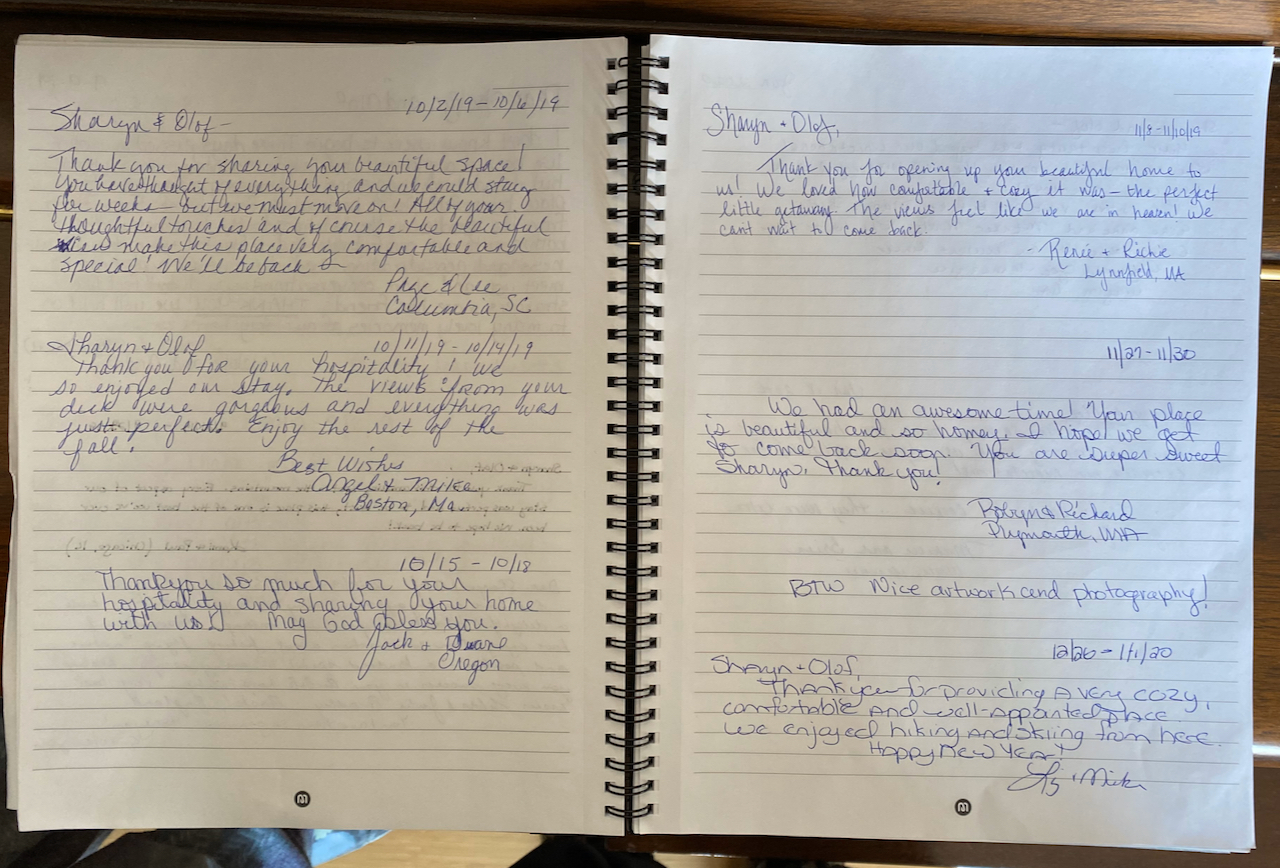 10/2/19 - 10/6/19
Sharyn & Olof -
Thank you for sharing your beautiful space!
You have thought of everything and we could stay
for weeks - but we must move on! All of your
thoughtful touches and of course the beautiful
view make this place very comfortable and
special! We'll be back
Page & Lee
Columbia, SC
Sharyn + Olof 10/11/19 - 10/14/19
Thank you for your hospitality! We
so enjoyed our stay. The views from your
deck were gorgeous and everything was
just perfect. Enjoy the rest of the
fall.
Best Wishes
Angel + Mike
Boston, Ma
10/15 - 10/18
Thankyou so much for your
hospitality and sharing your home
with us! May God bless you.
Jack + Duane
Oregon
Sharyn + Olof, 11/8 - 11/10/19
Thank you for opening up your beautiful home to
us! We loved how comfortable + cozy it was - the perfect
little getaway. The views feel like we are in heaven! We
can't wait to come back.
- Renie + Richie
Lynnfield, MA
11/27 - 11/30
We had an awesome time! Your place
is beautiful and so homey. I hope we get
to come back soon. You are super sweet
Sharyn, thank you!
Robyn & Richard
Plymouth, MA
BTW Nice artwork and photography!
12/26 - 1/1/20
Sharyn + Olof,
Thank you for providing A very cozy,
comfortable And well-Appointed place.
We enjoyed hiking And skiing from here.
Happy New Year!
Mike